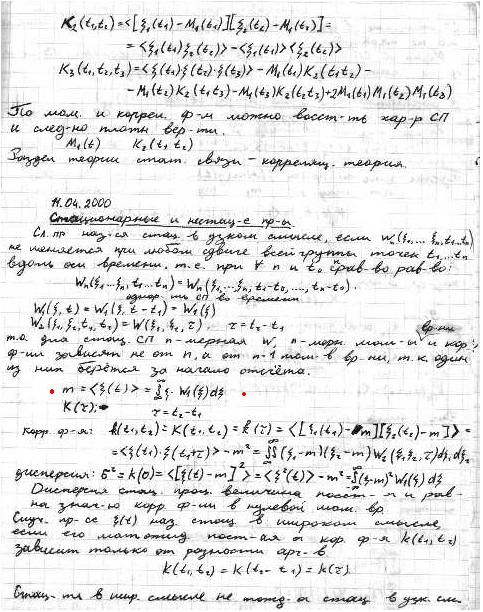 K₂(t₁,t₂) = <[ξ₁(t₁) − M₁(t₁)][ξ₂(t₂) − M₁(t₂)] =
= <ξ₁(t₁) ξ₂(t₂)> − <ξ₁(t₁)><ξ₂(t₂)>
K₃(t₁,t₂,t₃) = <ξ(t₁)ξ(t₂)·ξ(t₃)> − M₁(t₁)K₂(t₁t₂) −
− M₁(t₂)K₂(t₁t₃) − M₁(t₃)K₂(t₂t₃) + 2M₁(t₁)M₁(t₂)M₁(t₃)
По мом. и коррел. ф-м можно восст-ть хар-р СП
и след-но плотн вер-ти.
M₁(t) K₂(t₁t₂)
Раздел теории стат. связи – корреляц. теория.
11.04.2000
Стационарные и нестац-е пр-ы.
Сл. пр наз-ся стац. в узком смысле, если Wₙ(ξ₁...ξₙ,t₁..tₙ)
не меняется при любом сдвиге всей группы точек t₁...tₙ
вдоль оси времени, т.е. при ∀ n и t₀ рав-во:
Wₙ(ξ₁,...ξₙ,t₁...tₙ) = Wₙ(ξ₁,...,ξₙ,t₁-t₀,...,tₙ-t₀).
однор-ть СП во времени
W₁(ξ,t) = W₁(ξ,t-t₁) = W₁(ξ)
W₂(ξ₁,ξ₂,t₁,t₂) = W(ξ₁,ξ₂,τ) τ=t₂-t₁
т.о. для стац. СП n-мерная W, n-мерн. мом-ы и кор.
ф-ии зависят не от n, а от n-1 мом-в вр-ни, т.к. один
из них берётся за начало отсчёта.
m = <ξ(t)> = ∫ξ·W₁(ξ)dξ
K(τ); τ=t₂-t₁
корр. ф-я: k(t₁,t₂) = K(t₁,t₂) = k(τ) = <[ξ₁(t₁)-m][ξ(t₂)-m]> =
= <ξ(t)·ξ(t+τ)> − m² = ∫∫(ξ₁-m)(ξ₂-m)W₂(ξ₁,ξ₂,τ)dξ₁dξ₂
дисперсия: σ² = k(0) = <[ξ(t)-m]²> = <ξ²(t)> − m² = ∫(ξ-m)²W₁(ξ)dξ
Дисперсия стац. проц. величина пост-я и рав-
на знач-ю корр ф-ии в нулевой мом. вр.
Случ. пр-сс ξ(t) наз стац в широком смысле,
если его матожид. пост-ая а кор. ф-я k(t₁,t₂)
зависит только от разности арг-в.
k(t₁,t₂) = K(t₂-t₁) = k(τ)
Стац-ть в шир. смысле не тожд-а стац. в узк. см.